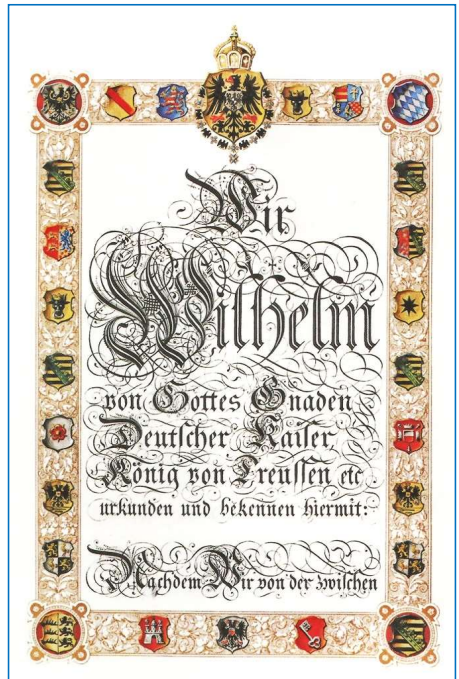 Wir
Wilhelm
von Gottes Gnaden
Deutscher Kaiser
König von Preussen etc
urkunden und bekennen hiermit:
Nachdem Wir von der zwischen